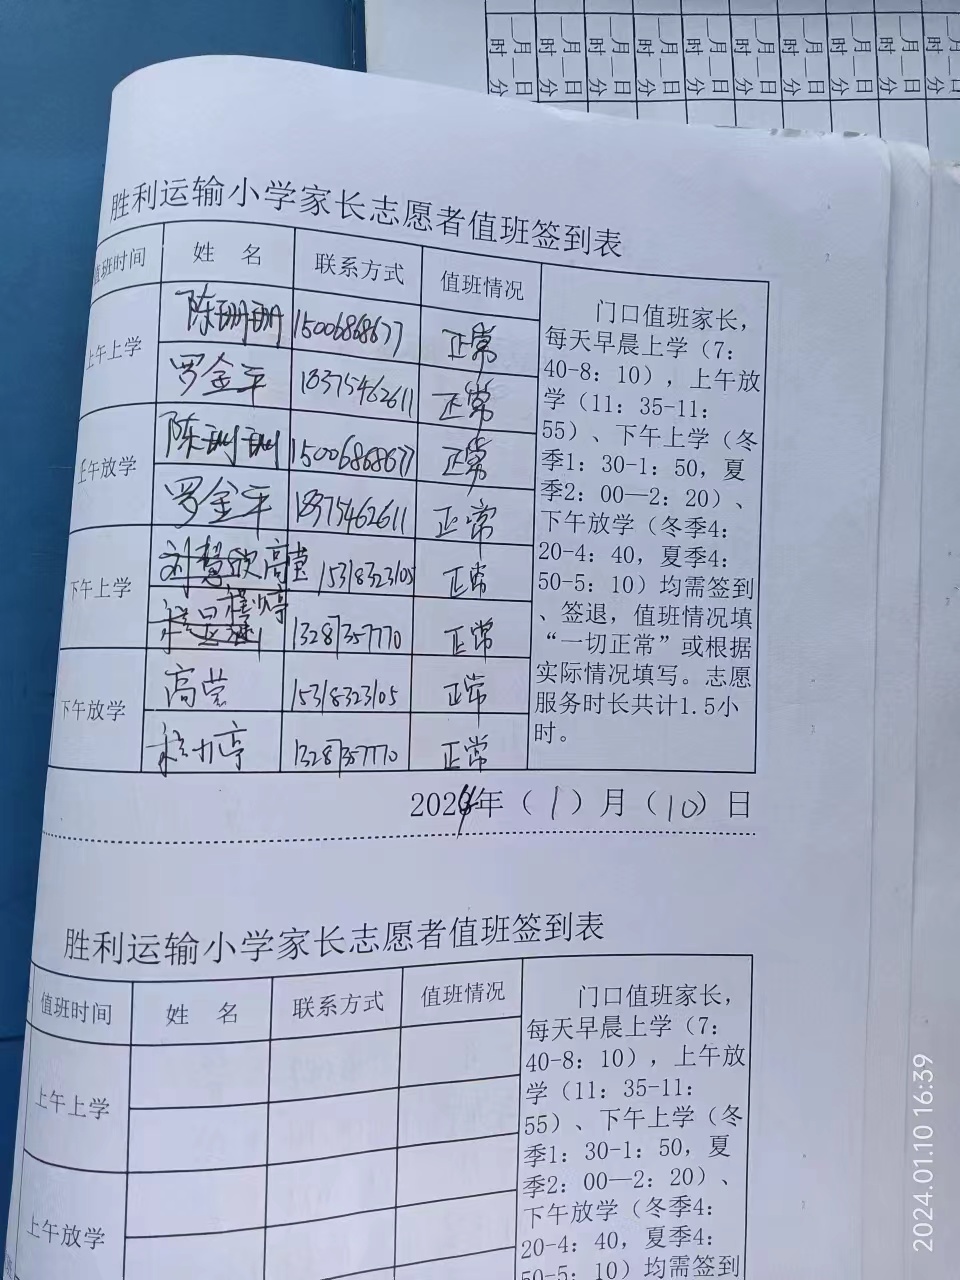 月 日 月 日 月 日 月 日 月 日 月 日 月 日 月 日 月 日 月 日
时 分 时 分 时 分 时 分 时 分 时 分 时 分 时 分 时 分 时 分
胜利运输小学家长志愿者值班签到表
值班时间 姓 名 联系方式 值班情况
上午上学 陈珊珊 15006868677 正常
罗金平 18375462611 正常
上午放学 陈珊珊 15006868677 正常
罗金平 18375462611 正常
下午上学 高莹 15318323105 正常
13287357770 正常
下午放学 高莹 15318323105 正常
13287357770 正常
门口值班家长,
每天早晨上学(7:
40-8:10),上午放
学(11:35-11:
55)、下午上学(冬
季1:30-1:50,夏
季2:00—2:20)、
下午放学(冬季4:
20-4:40,夏季4:
50-5:10)均需签到
、签退,值班情况填
“一切正常”或根据
实际情况填写。志愿
服务时长共计1.5小
时。
2024年(1)月(10)日
胜利运输小学家长志愿者值班签到表
值班时间 姓 名 联系方式 值班情况
上午上学
上午放学
门口值班家长,
每天早晨上学(7:
40-8:10),上午放
学(11:35-11:
55)、下午上学(冬
季1:30-1:50,夏
季2:00—2:20)、
下午放学(冬季4:
20-4:40,夏季4:
50-5:10)均需签到
2024.01.10 16:39